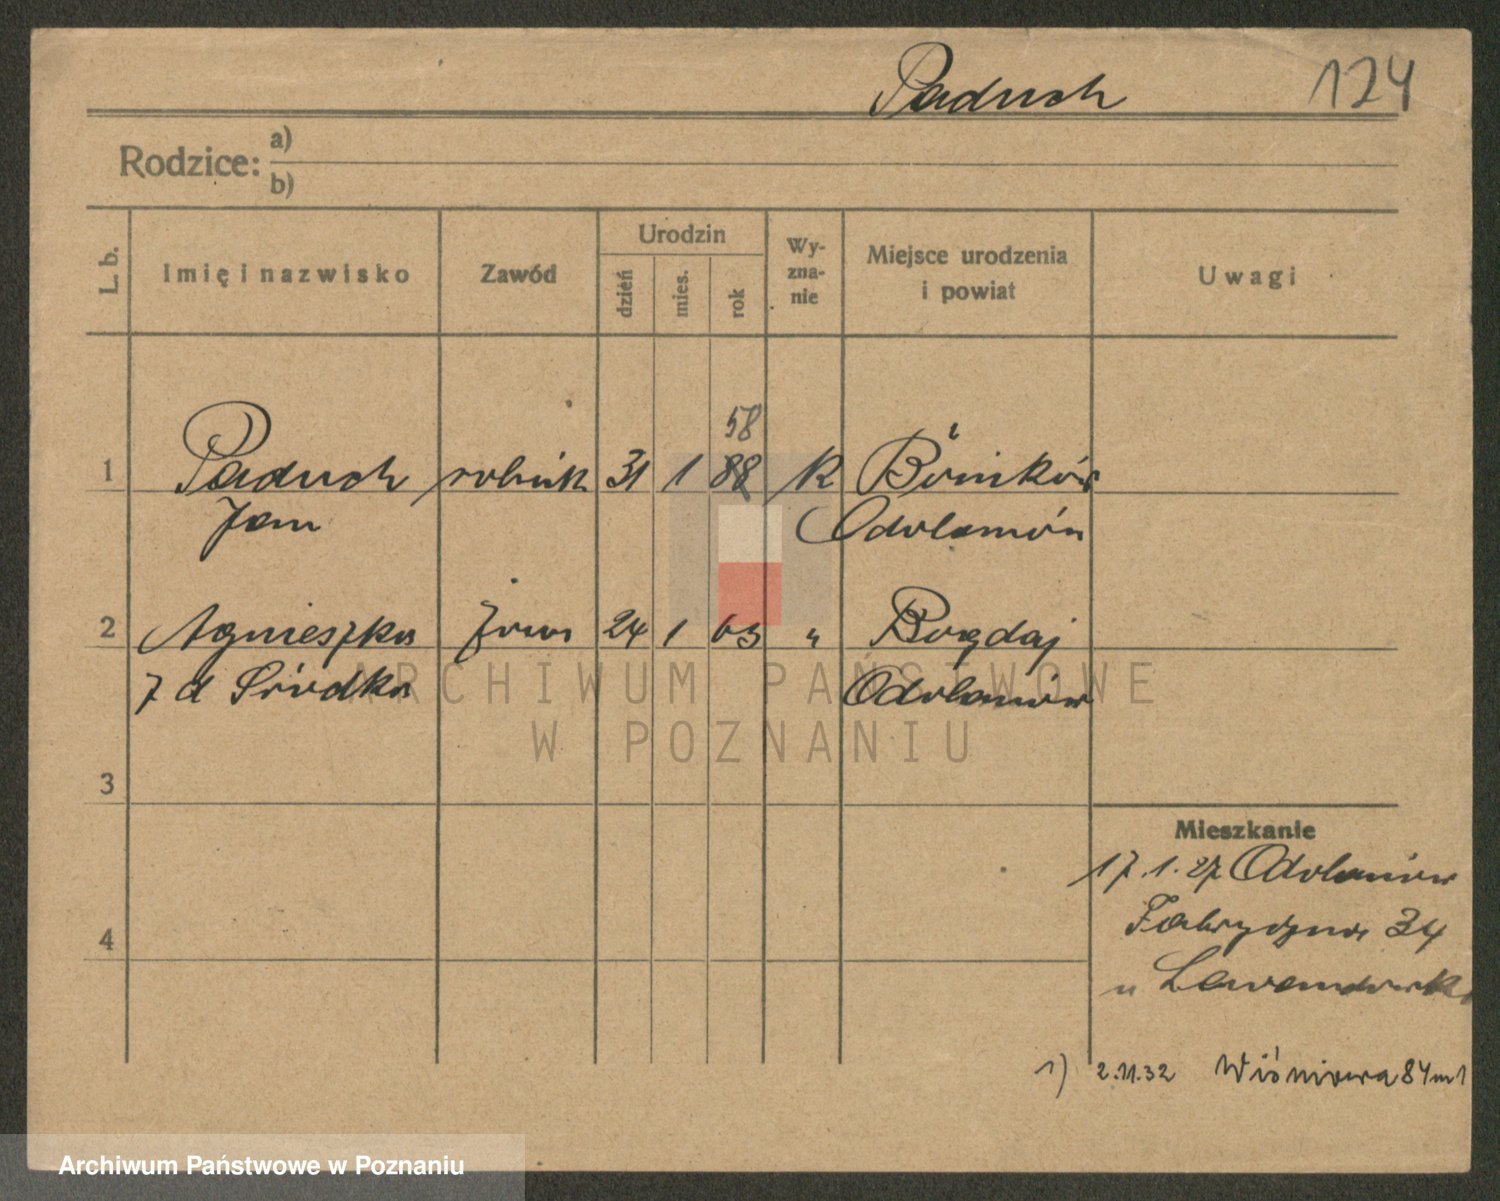 Paduch 124
Rodzice: a)
b)
L. b. Imię i nazwisko Zawód Urodzin dzień mies. rok Wy-zna-nie Miejsce urodzenia i powiat Uwagi
58
1 Paduch rolnik 31 1 88 R
Jan Odolanów
2 Agnieszka żona 24 1 63 " Bogdaj
z d Środka Odolanów
ARCHIWUM PAŃSTWOWE
W POZNANIU
3
Mieszkanie
17.1.27 Odolanów
Fabryczna 34
4
u Lewandowski
1) 2.11.32 Wiśniowa 84 m 1
Archiwum Państwowe w Poznaniu